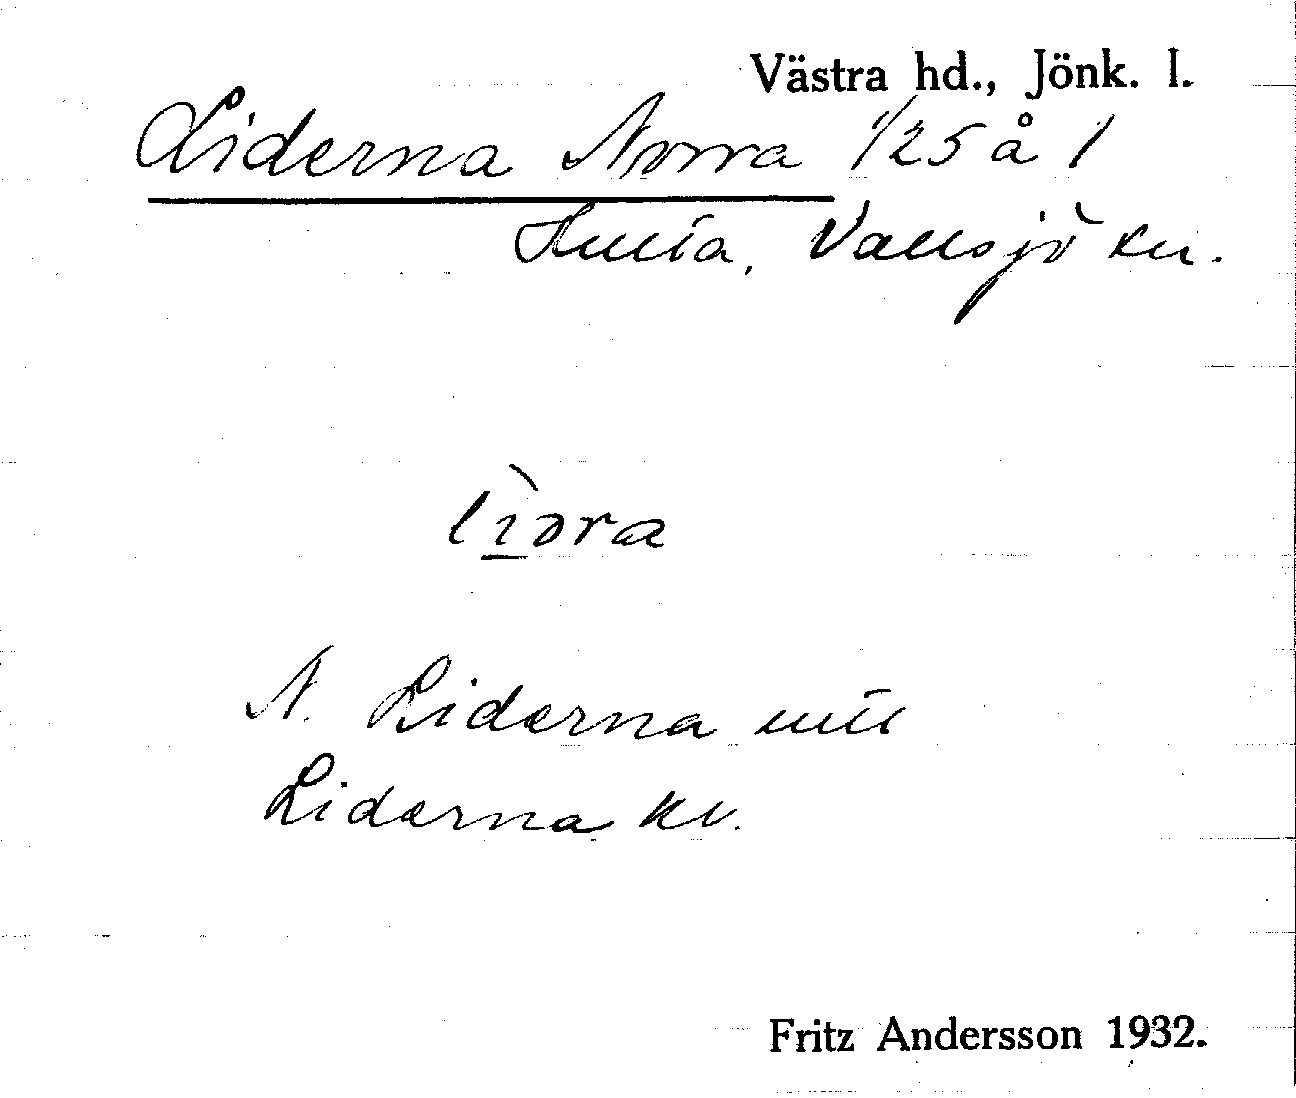 Västra hd., Jönk. l.
Liderna Norra 1/25 å 1
Hulta, Vallsjö sn.
lìdra
N. Liderna uttl
Liderna kv.
Fritz Andersson 1932.